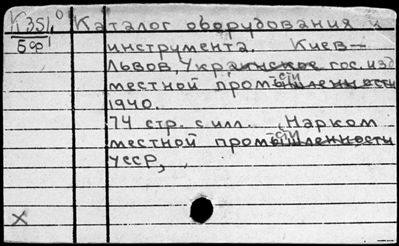 V 351,0 Каталог оборудования и
5 ф инструмента. Киев—
Львов, Украинское гос. изд
местной пром-сти
1940.
74 стр. с илл. (Нарком
местной пром-сти
УССР,
X